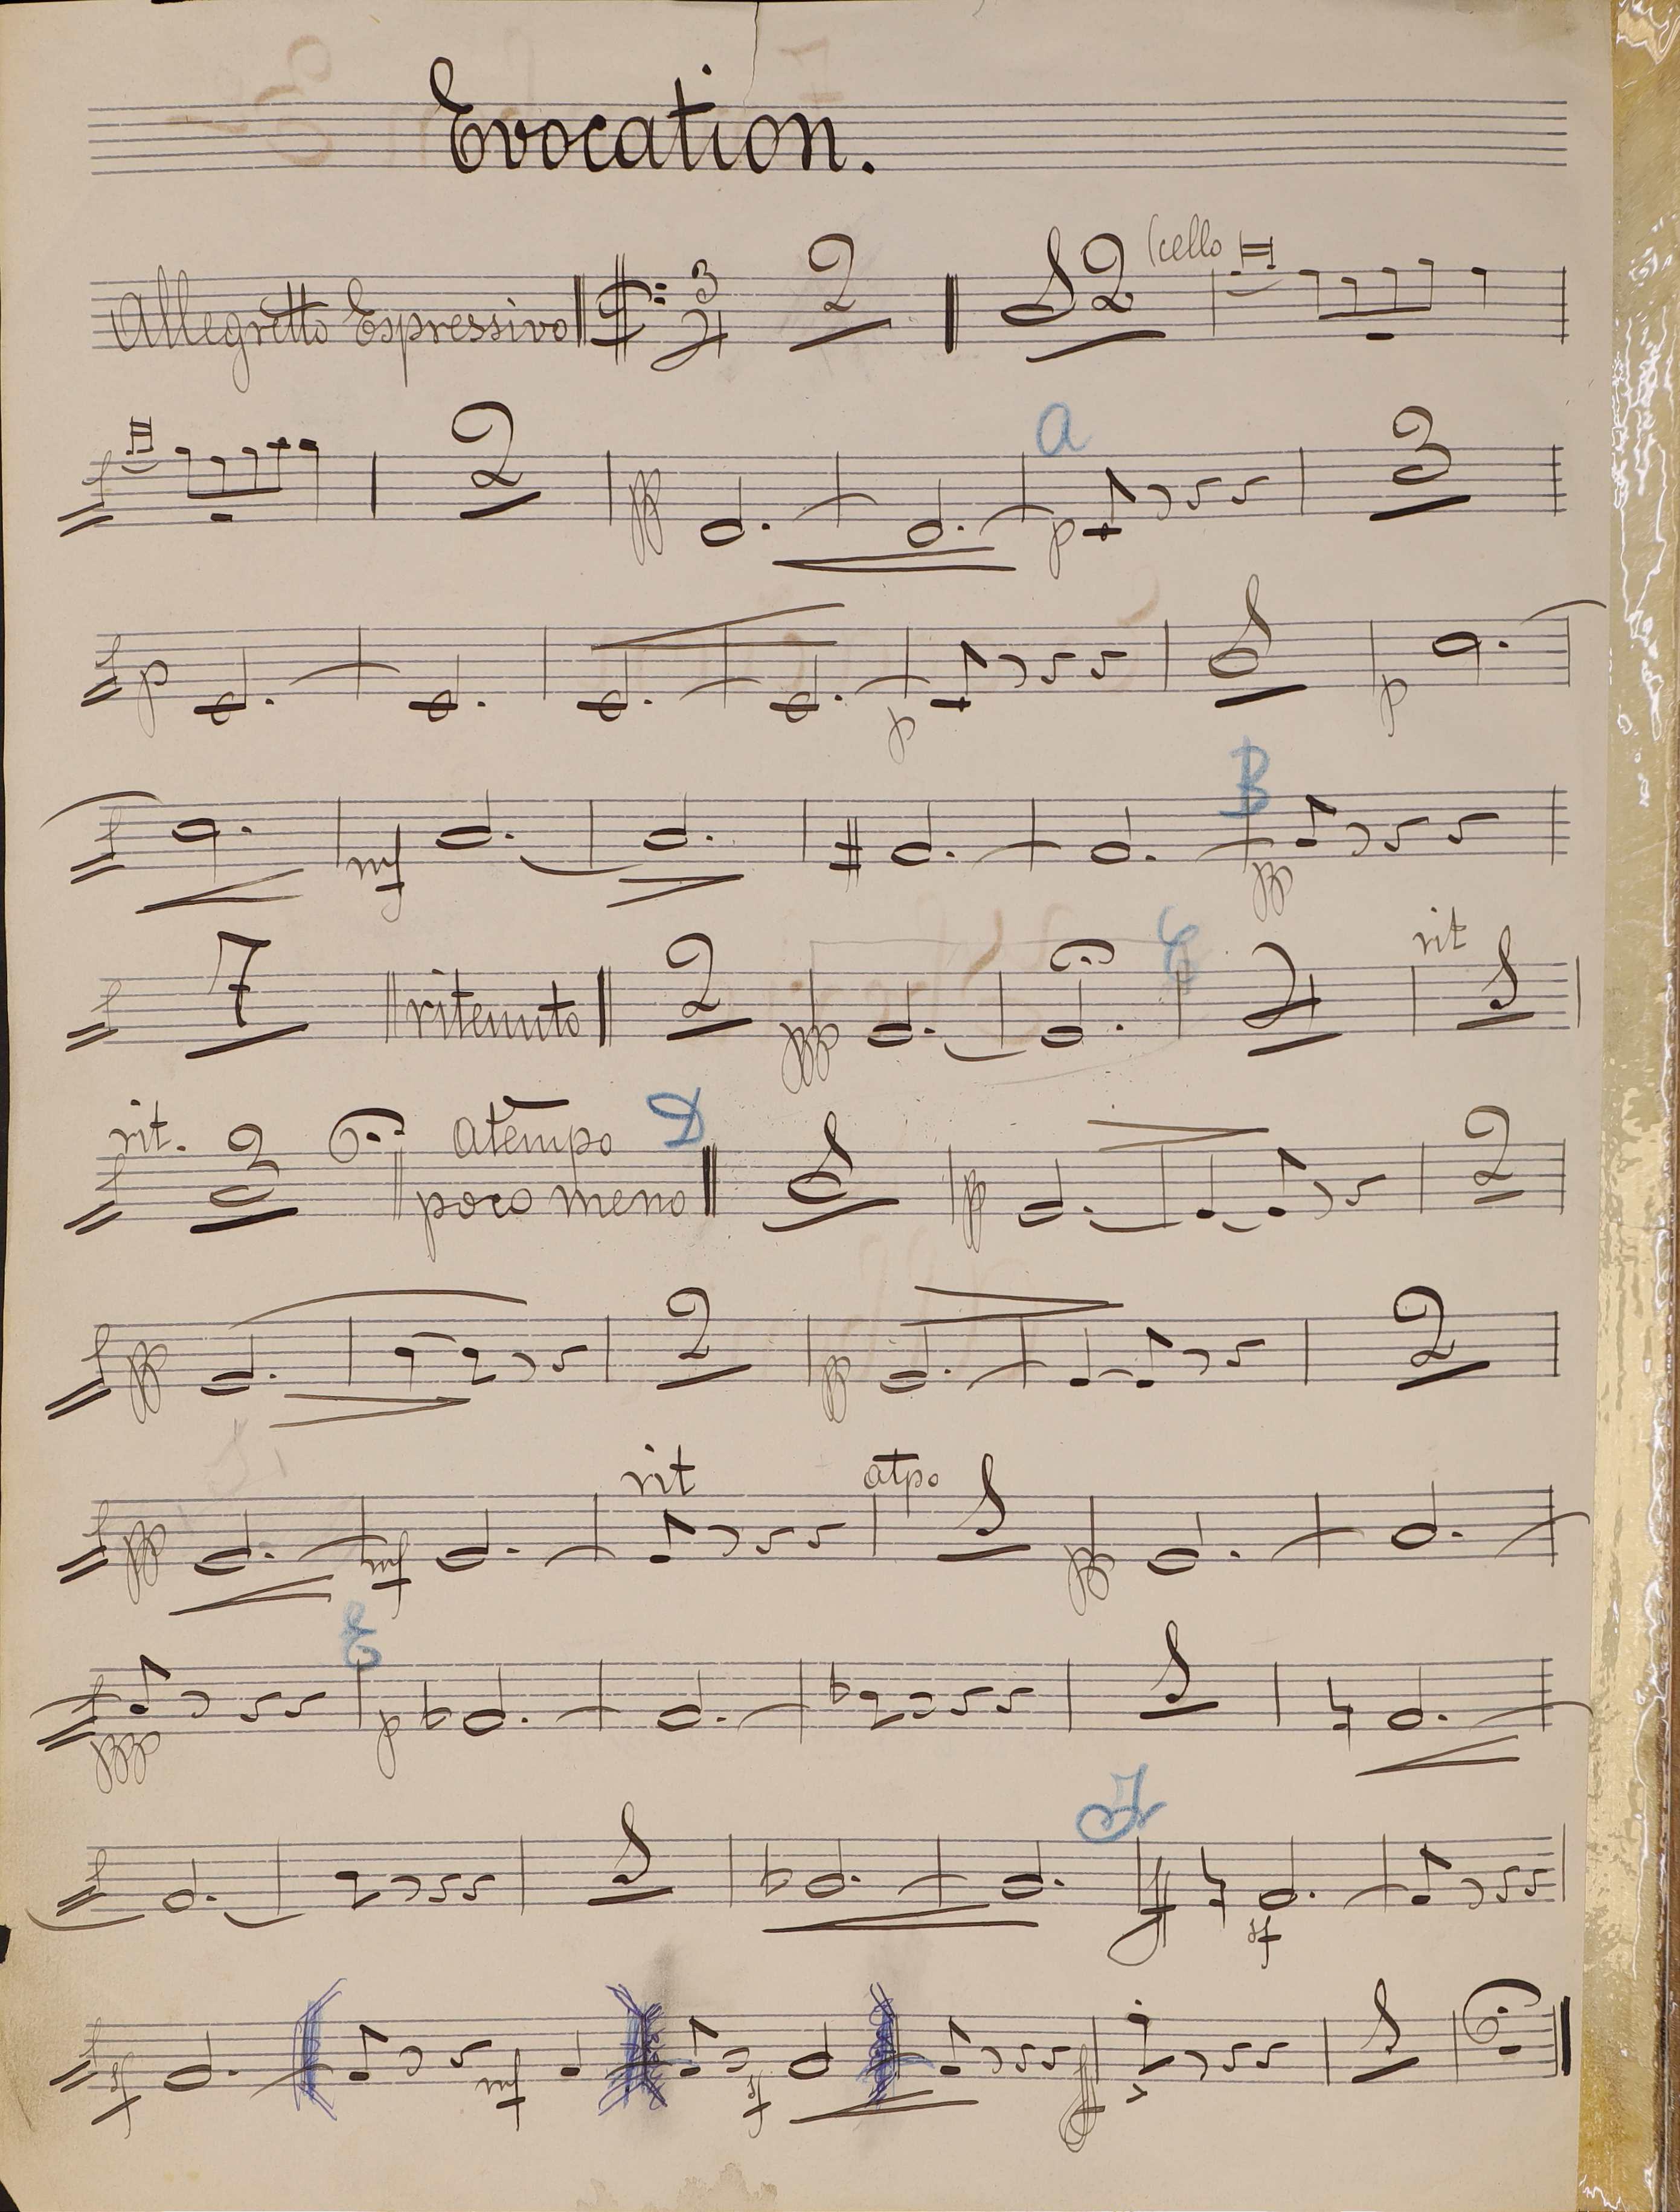 Evocation.
Allegretto Espressivo 3 4 2 2 (cello
2 pp p A 3
p p p
mf pp B
7 ritenuto 2 ppp C 4 rit
rit. 2 a tempo poco meno D pp 2
pp 2 pp 2
pp mf rit atpo pp
ppp E p
F ff sf
sf mf sf fff